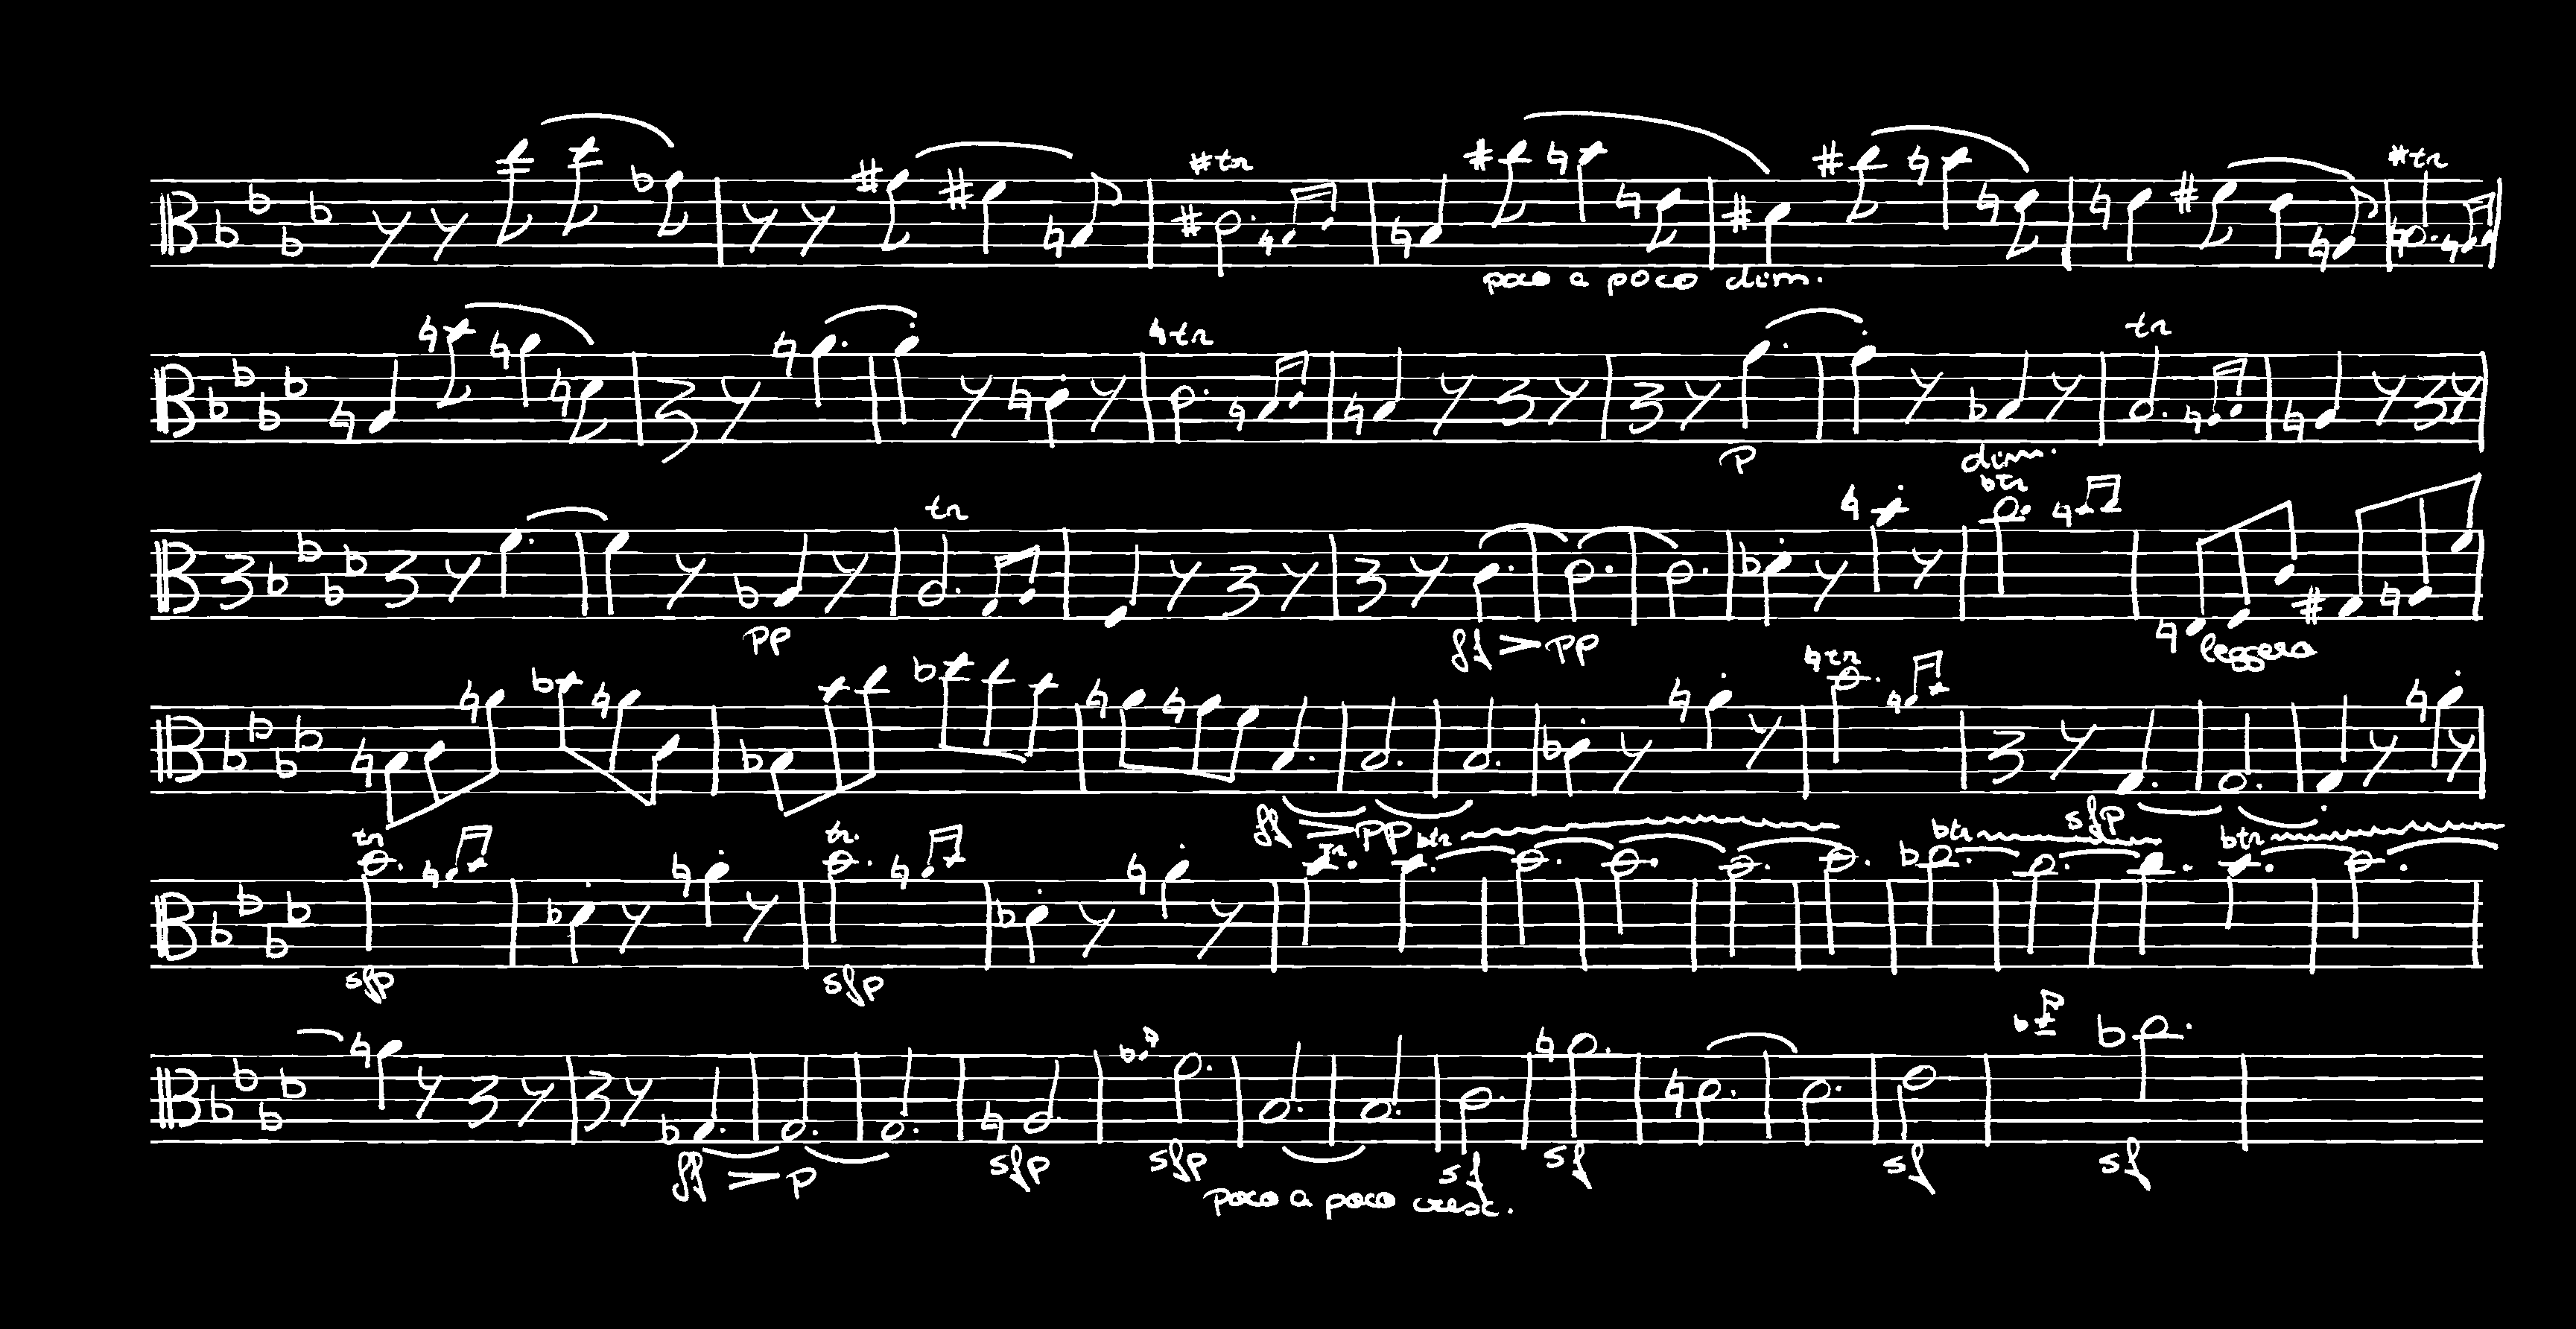 tr tr
poco a poco dim.
tr tr
p dim.
tr tr
pp ff pp leggero
tr
ff pp sfp
tr tr tr tr tr tr
sfp sfp
ff p sfp sfp sf sf sf sf
poco a poco cresc.